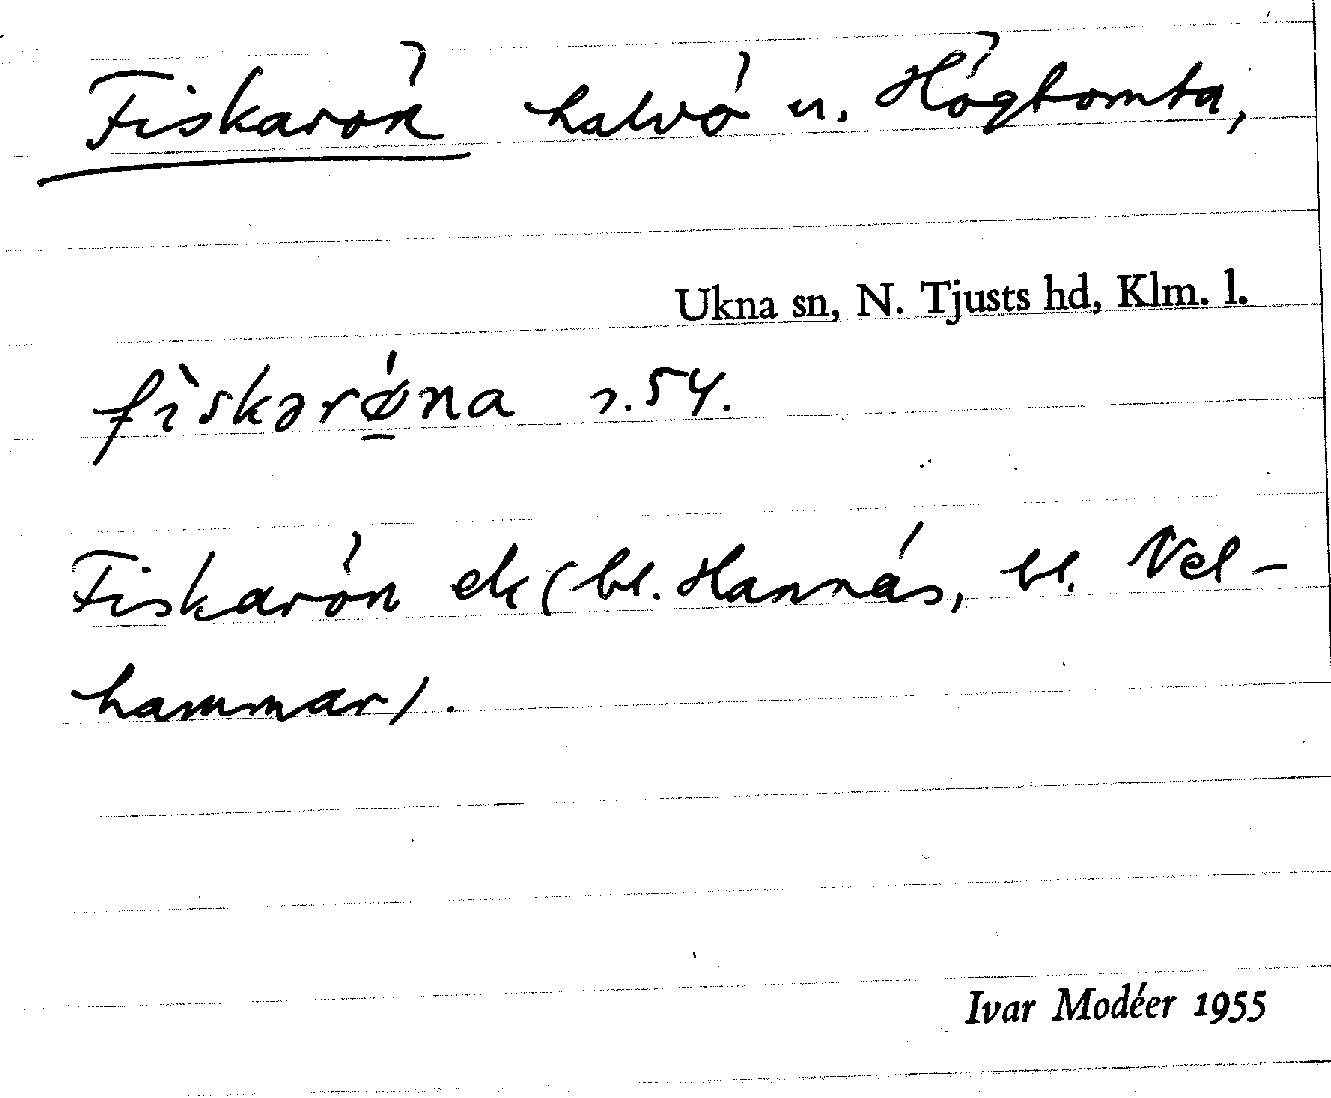 Fiskarön halvö u. Högtomta,
Ukna sn, N. Tjusts hd, Klm. l.
fìskərǿ̱na s.54.
Fiskarön ek (bl. Hannäs, bl. Vel-
hammar).
Ivar Modéer 1955